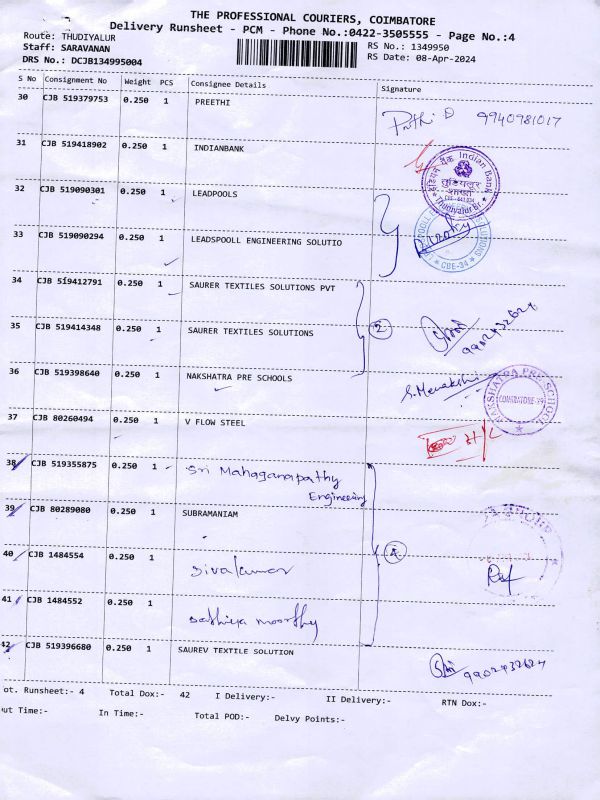 THE PROFESSIONAL COURIERS, COIMBATORE
Delivery Runsheet - PCM - Phone No.:0422-3505555 - Page No.:4
Route: THUDIYALUR
RS No.: 1349950
Staff: SARAVANAN
RS Date: 08-Apr-2024
DRS No.: DCJB134995004
S No Consignment No Weight PCS Consignee Details Signature
30 CJB 519379753 0.250 1 PREETHI
Preethi D 9940981017
31 CJB 519418902 0.250 1 INDIANBANK
इंडियन बैंक Indian Bank
Thudiyalur Br.
32 CJB 519090301 0.250 1 LEADPOOLS
33 CJB 519090294 0.250 1 LEADSPOOLL ENGINEERING SOLUTIO
CBE-34
34 CJB 519412791 0.250 1 SAURER TEXTILES SOLUTIONS PVT
2
9902432624
35 CJB 519414348 0.250 1 SAURER TEXTILES SOLUTIONS
36 CJB 519398640 0.250 1 NAKSHATRA PRE SCHOOLS
S. Menakshi
NAKSHATRA PRE SCHOOL
COIMBATORE-29
37 CJB 80260494 0.250 1 V FLOW STEEL
38 CJB 519355875 0.250 1 Sri Mahaganapathy
Engineering
39 CJB 80289080 0.250 1 SUBRAMANIAM
40 CJB 1484554 0.250 1 Sivakumar
4
41 CJB 1484552 0.250 1 Sathiya moorthy
42 CJB 519396680 0.250 1 SAUREV TEXTILE SOLUTION
9902432624
ot. Runsheet:- 4 Total Dox:- 42 I Delivery:- II Delivery:- RTN Dox:-
ut Time:- In Time:- Total POD:- Delvy Points:-